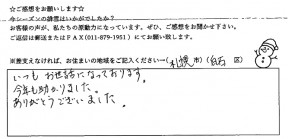 ☆ご感想をお願いします☆
今シーズンの排雪はいかがでしたか？
お客様の声が、私たちの原動力になっています。ぜひ、ご感想をお聞かせ下さい。
ご返信は郵送またはFAX(011-879-1951)にてお願い致します。
※差支えなければ、お住まいの地域をご記入ください…(札幌市)(白石 区)
いつもお世話になっております。
今年も助かりました。
ありがとうございました。